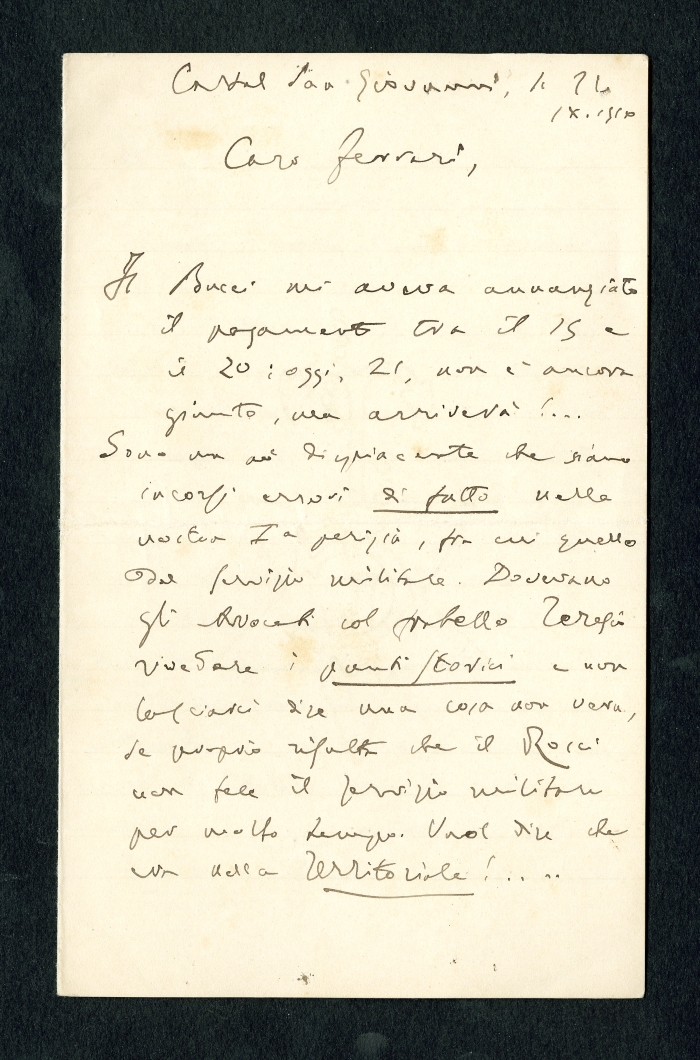 Castel San Giovanni, li 21
IX. 1910
Caro Ferrari,
Il Bucci mi aveva annunziato
il pagamento tra il 15 e
il 20: oggi, 21, non è ancora
giunto, ma arriverà!...
Sono un po' dispiacente che siamo
incorsi errori di fatto nella
nostra Iª perizia, fra cui quello
del servizio militare. Dovevano
gli Avvocati col fratello
rivedere i punti storici e non
lasciarci dire una cosa non vera,
se proprio risulta che il
non fece il servizio militare
per molto tempo. Vuol dire che
era nella Territoriale!....